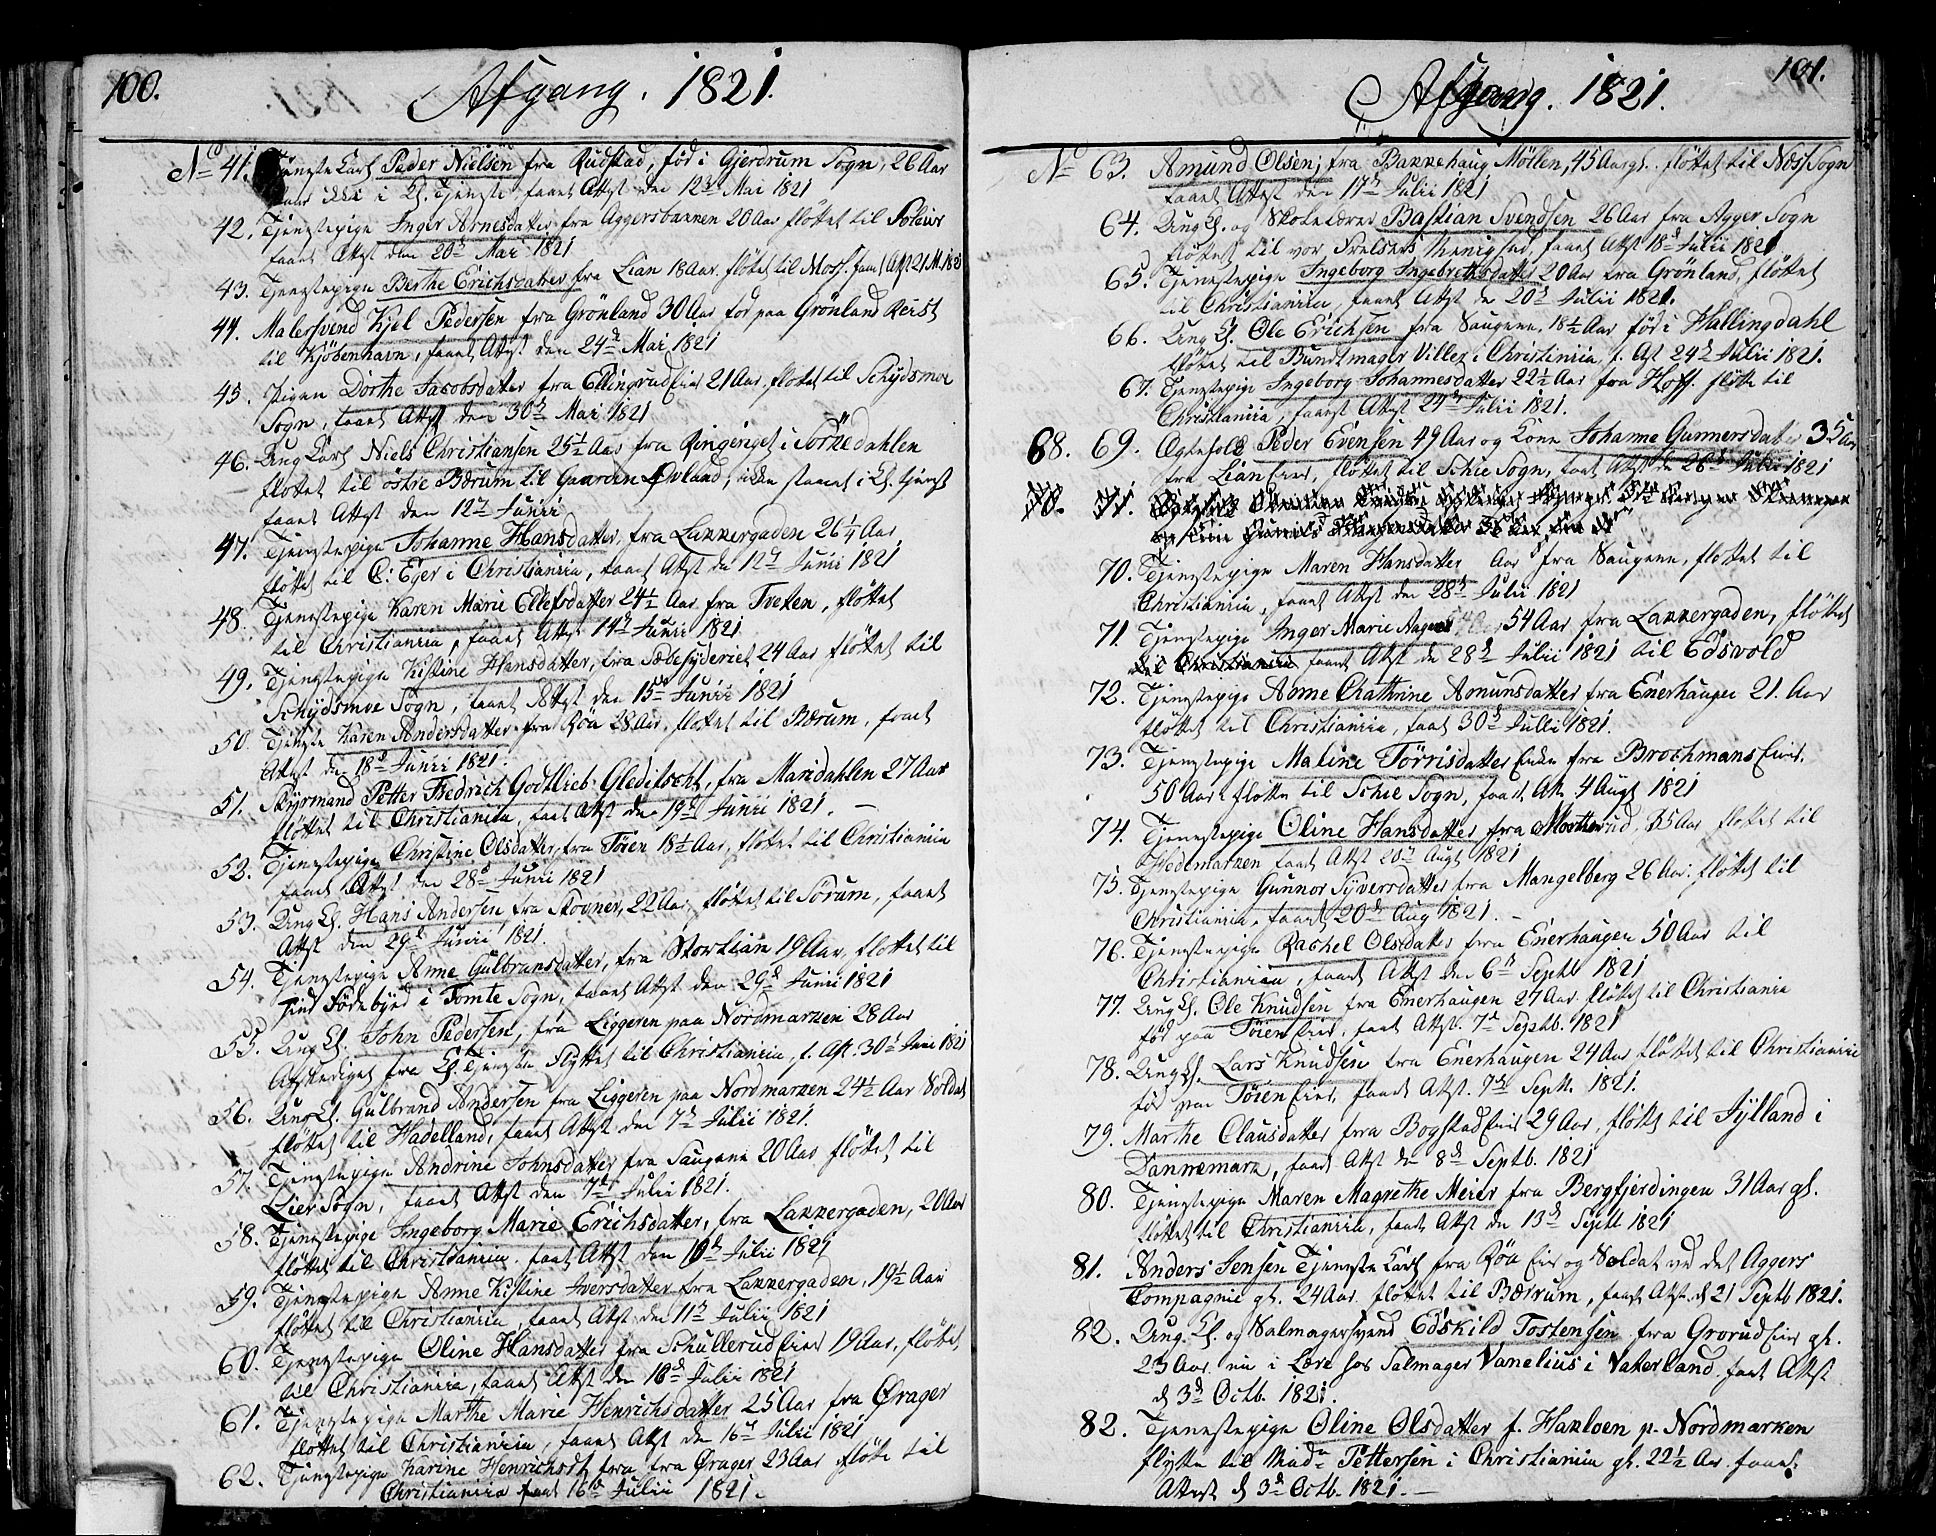 100.
Afgang. 1821.
No 41. Tjenestekarl Peder Nielsen fra Rudstad, fød i Gjerdrum Sogn, 26 Aar
ikke i K. Tjeneste faaet Attst den 12te Mai 1821
42. Tjenestepige Inger Arnesdatter fra Aggersbakken 20 Aar fløttet til Soløer
faaet Attst den 20d Mai 1821
43. Tjenestepigen Berthe Erichsdatter fra Lian 18 Aar. fløttet til Moss. faaet Attst 21 M. 1821
44. Malersvend Kjel Pedersen fra Grönland 30 Aar fød paa Grönland Reist
til Kjöbenhavn, faaet Attst den 24de Mai 1821
45. Pigen Dorthe Jacobsdatter fra Ellingsrud Eier 21 Aar. fløttet til Schydsmoe
Sogn, faaet Attst den 30d Mai 1821
46. Ung Karl Niels Christiansen 25½ Aar fra Ringeriget i Sörkedahlen
fløttet til östre Bærum til Gaarden Øvland, ikke staaet i K. tjenst
faaet Attst den 12te Junii
47. Tjenstepige Johanne Hansdatter, fra Lakkergaden 26¼ Aar,
fløttet til C: Eger i Christiania, faaet Attst de 12te Junii 1821
48. Tjenestepige Karen Marie Ellefsdatter 24½ Aar fra Tveten, fløttet
til Christiania, faaet Attst 14d Junii 1821
49. Tjenestepigen Kistine Hansdatter, fra Sæbesyderiet 24 Aar fløttet til
Schydsmoe Sogn, faaet Attst den 15de Junii 1821
50. Tjenste Karen Andersdatter fra Röa 28 Aar. fløttet til Bærum, faaet
Attest de 18d Junii 1821.
51. Styrmand Petter Fredrich Godtlieb Gleditscht, fra Maridahlen 27 Aar
fløttet til Christiania, faaet Attst den 19d Junii 1821.
52. Tjenestepige Christine Olsdatter, fra Töien 18½ Aar, fløttet til Christiania
faaet Attst den 28d Junii 1821
53. Ung K. Hans Andersen fra Stovner, 22 Aar, fløttet til Sörum, faaet
Attst den 29d Junii 1821.
54. Tjenestepige Anne Gulbransdatter, fra Stortlian 19 Aar, fløttet til
sin Födebÿed i Tomte Sogn, faaet Attst den 29d Junii 1821
55. Ung K. John Pedersen, fra Liggeren paa Nordmarken 28 Aar
Afskediget fra K. Tjeneste flyttet til Christiania, f. Ast. 30d Juni 1821
56. Ung K. Gulbrand Andersen fra Liggeren paa Nordmarken 24½ Aar Soldat
fløttet til Hadelland, faaet Attst den 7d Julii 1821.
57. Tjenestepigen Andrine Johnsdatter fra Saugene 20 Aar fløttet til
Lier Sogn, faaet Attst den 7d Julii 1821.
58. Tjenestepige Ingeborg Marie Erichsdatter, fra Lakkergaden, 20 Aar
fløttet til Christiania, faaet Attst den 10d Julii 1821
59. Tjenestepige Anne Kistine Iversdatter fra Lakkergaden, 19½ Aar
fløttet til Christiania, faaet Attst den 11d Julii 1821
60. Tjenestepige Oline Hansdatter fra Schullerud Eier 19 Aar, fløttet
til Christiania, faaet Attst den 16d Julii 1821
61. Tjenestepige Marthe Marie Henrichsdatter 25 Aar fra Ørager
fløttet til Christiania, faaet Attst den 16d Julii 1821
62. Tjenstepige Karine Henrichsdt fra Ørager 23 Aar fløtte til
Christiania faaet 16d Julii 1821.
101.
Afgang. 1821.
No 63. Amund Olsen, fra Bakkehaug Möllen, 45 Aar gl. fløttet til Næs Sogn
faaet Attst den 17d Julii 1821
64. Ung K. og Skolelærer Bastian Svendsen 26 Aar fra Agger Sogn
fløttet til vor Frelsers Menighed, faaet Attst 18d Julii 1821
65. Tjenestepige Ingeborg Ingebrethsdatter 20 Aar fra Grönland, fløttet
til Christiania, faaet Attst de 20d Julii 1821.
66. Ung K. Ole Erichsen fra Saugene, 18½ Aar fød i Hallingdahl
fløttet til Bundtmager Villez i Christinia, f. Ast 24d Julii 1821.
67. Tjenestepige Ingeborg Johannesdatter 22½ Aar fra Hoff. fløtte til
Christiania, faaet Attst 24d Julii 1821.
68. 69. Ægtefolk Peder Evensen 49 Aar og Kone Johanne Gunnersdatter 35 Aar
fra Lian Eier, fløttet til Schie Sogn, faaet Attst de 26d Julii 1821
70. 71.
70. Tjenestepige Maren Hansdatter Aar fra Saugene, fløttet til
Christiania, faaet Attst den 28d Julii 1821
71. Tjenestepige Inger Marie 54 Aar fra Lakkergaden, fløttet
til Christiania faaet Attst de 28d Julii 1821 til Edsvold
72. Tjenestepige Anne Chathrine Amunsdatter fra Enerhaugen 21. Aar
fløttet til Christiania, faaet 30d Julii 1821.
73. Tjenstepige Maline Törrisdatter Enke fra Brochmans Eier.
50 Aar fløtte til Schie Sogn, faaet Att. 4 Augt 1821
74. Tjenestepige Oline Hansdatter fra Mortterud, 35 Aar fløttet til
Hedemarken faaet Attst 20d Augt 1821
75. Tjenestepige Gunnor Syversdatter fra Mangelberg 26 Aar. fløttet til
Christiania, faaet 20d Aug 1821.
76. Tjenestepige Rachel Olsdatter fra Enerhaugen 50 Aar til
Christiania, faaet Attst den 6d Septb 1821
77. Ung K. Ole Knudsen fra Enerhaugen 27 Aar fløttet til Christiania
fød paa Töien Eier, faaet Attst. 7d Septb. 1821
78. Ung K. Lars Knudsen fra Enerhaugen 24 Aar fløttet til Christiania
fød paa Töien Eier, faaet Attst. 7d Septb. 1821.
79. Marthe Clausdatter fra Bogstad Eier 29 Aar, fløttet til Jylland i
Dannemark, faaet Attst de 8d Septb. 1821
80. Tjenestepige Maren Magrethe Meier fra Bergfjerdingen 31 Aar gl.
fløttet til Christiania, faaet Attst de 13d Septb 1821
81. Anders Jensen Tjenste Karl fra Röa Eier og Soldat ved det Aggers
Compagnie gl. 24 Aar fløttet til Bærum, faaet Attst. d 21 Septb 1821.
82. Ung K. og Salmagersvend Edskild Tostensen fra Grorud Eier gl.
23 Aar nu i Lære hos Salmager Vanelius i Vaterland faaet Attst
d 3d Octb. 1821.
82. Tjenestepige Oline Olsdatter f. Hakloen p. Nordmarken
flytte til Mad. Pettersen i Christiania gl. 22½ Aar faaet
Attest d 3d Octb. 1821.